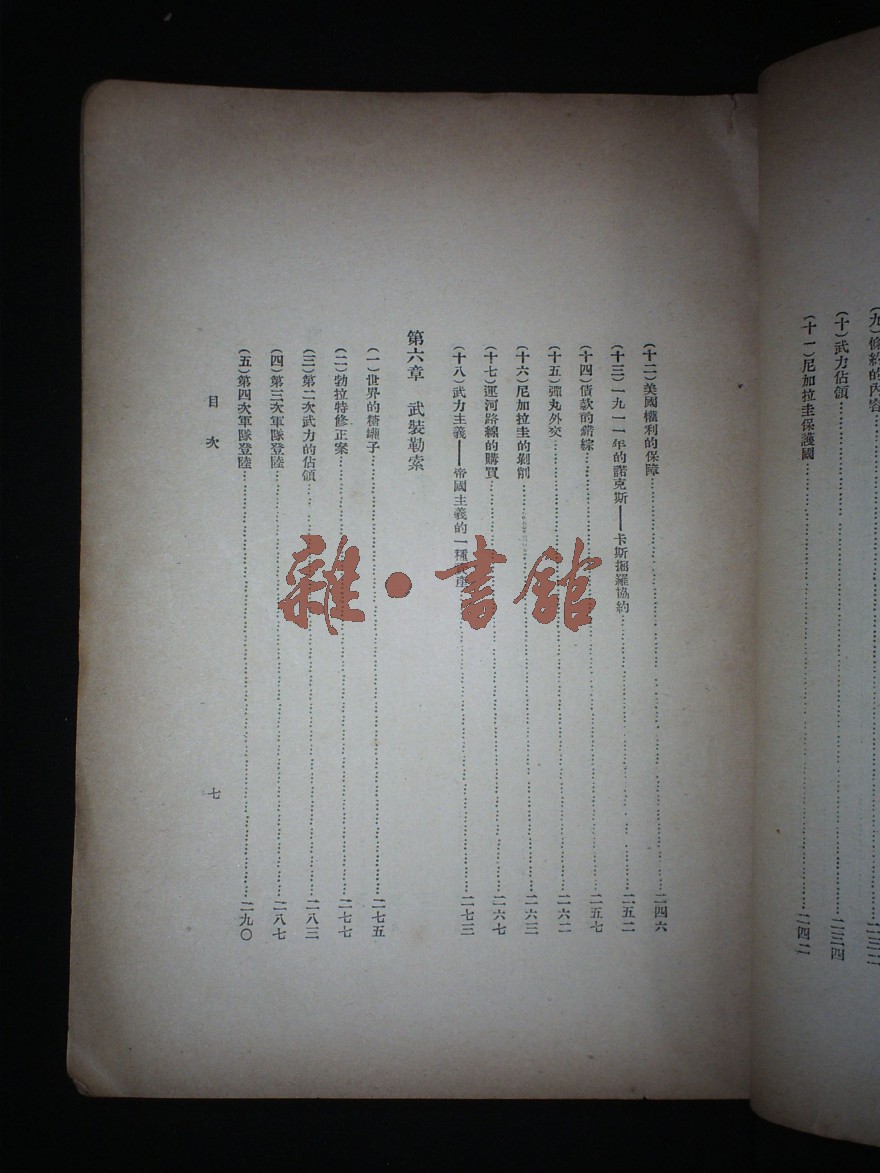 (九)修約的內容……二三二
(十)武力佔領……二三四
(十一)尼加拉圭保護國……二四二
(十二)美國權利的保障……二四六
(十三)一九一一年的諾克斯——卡斯掰羅協約……二五二
(十四)債款的錯綜……二五七
(十五)彈丸外交……二六二
(十六)尼加拉圭的剝削……二六三
(十七)運河路線的購買……二六七
(十八)武力主義——帝國主義的一種……二七三
第六章 武裝勒索
(一)世界的糖罐子……二七五
(二)勃拉特修正案……二七七
(三)第二次武力的佔領……二八三
(四)第三次軍隊登陸……二八七
(五)第四次軍隊登陸……二九〇
目次
七
雜·書館